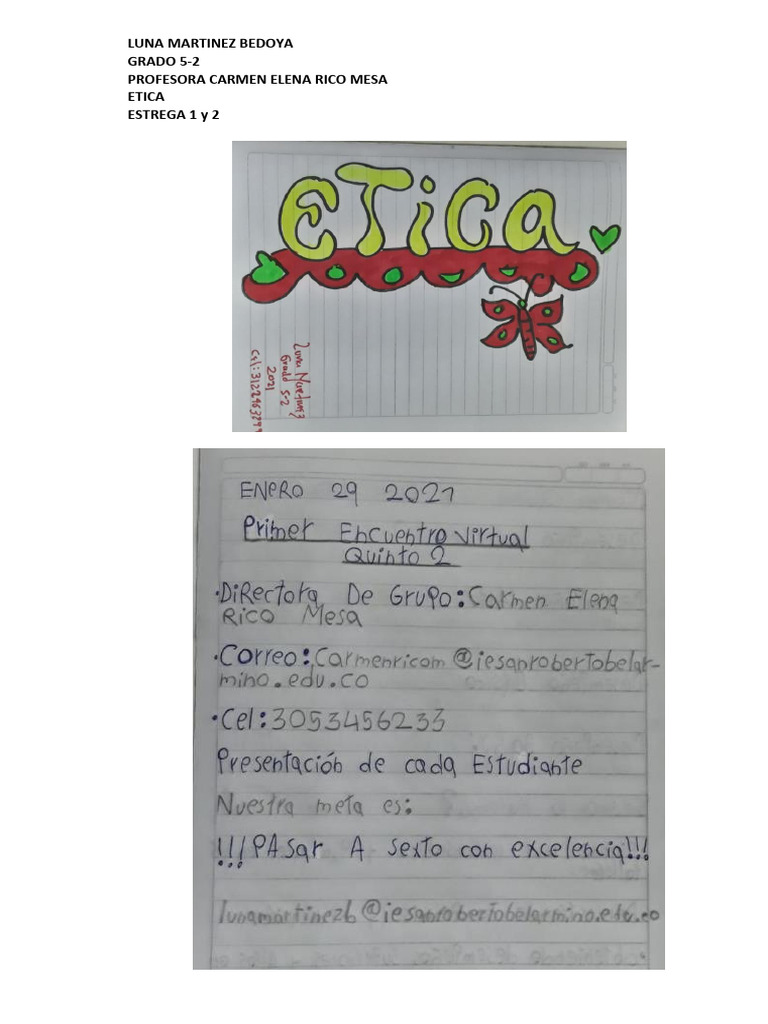 LUNA MARTINEZ BEDOYA
GRADO 5-2
PROFESORA CARMEN ELENA RICO MESA
ETICA
ESTREGA 1 y 2
ETiCa
Luna Martinez
Grado 5-2
2021
ENERO 29 2021
Primer Encuentro Virtual
Quinto 2
•DiRectora De Grupo: Carmen Elena
Rico Mesa
•Correo: Carmenricom@iesanrobertobelar-
mino.edu.co
•Cel: 3053456233
Presentación de cada Estudiante
Nuestra meta es:
!!!PAsar A sexto con excelencia!!!
lunamartinezb@iesanrobertobelarmino.edu.co